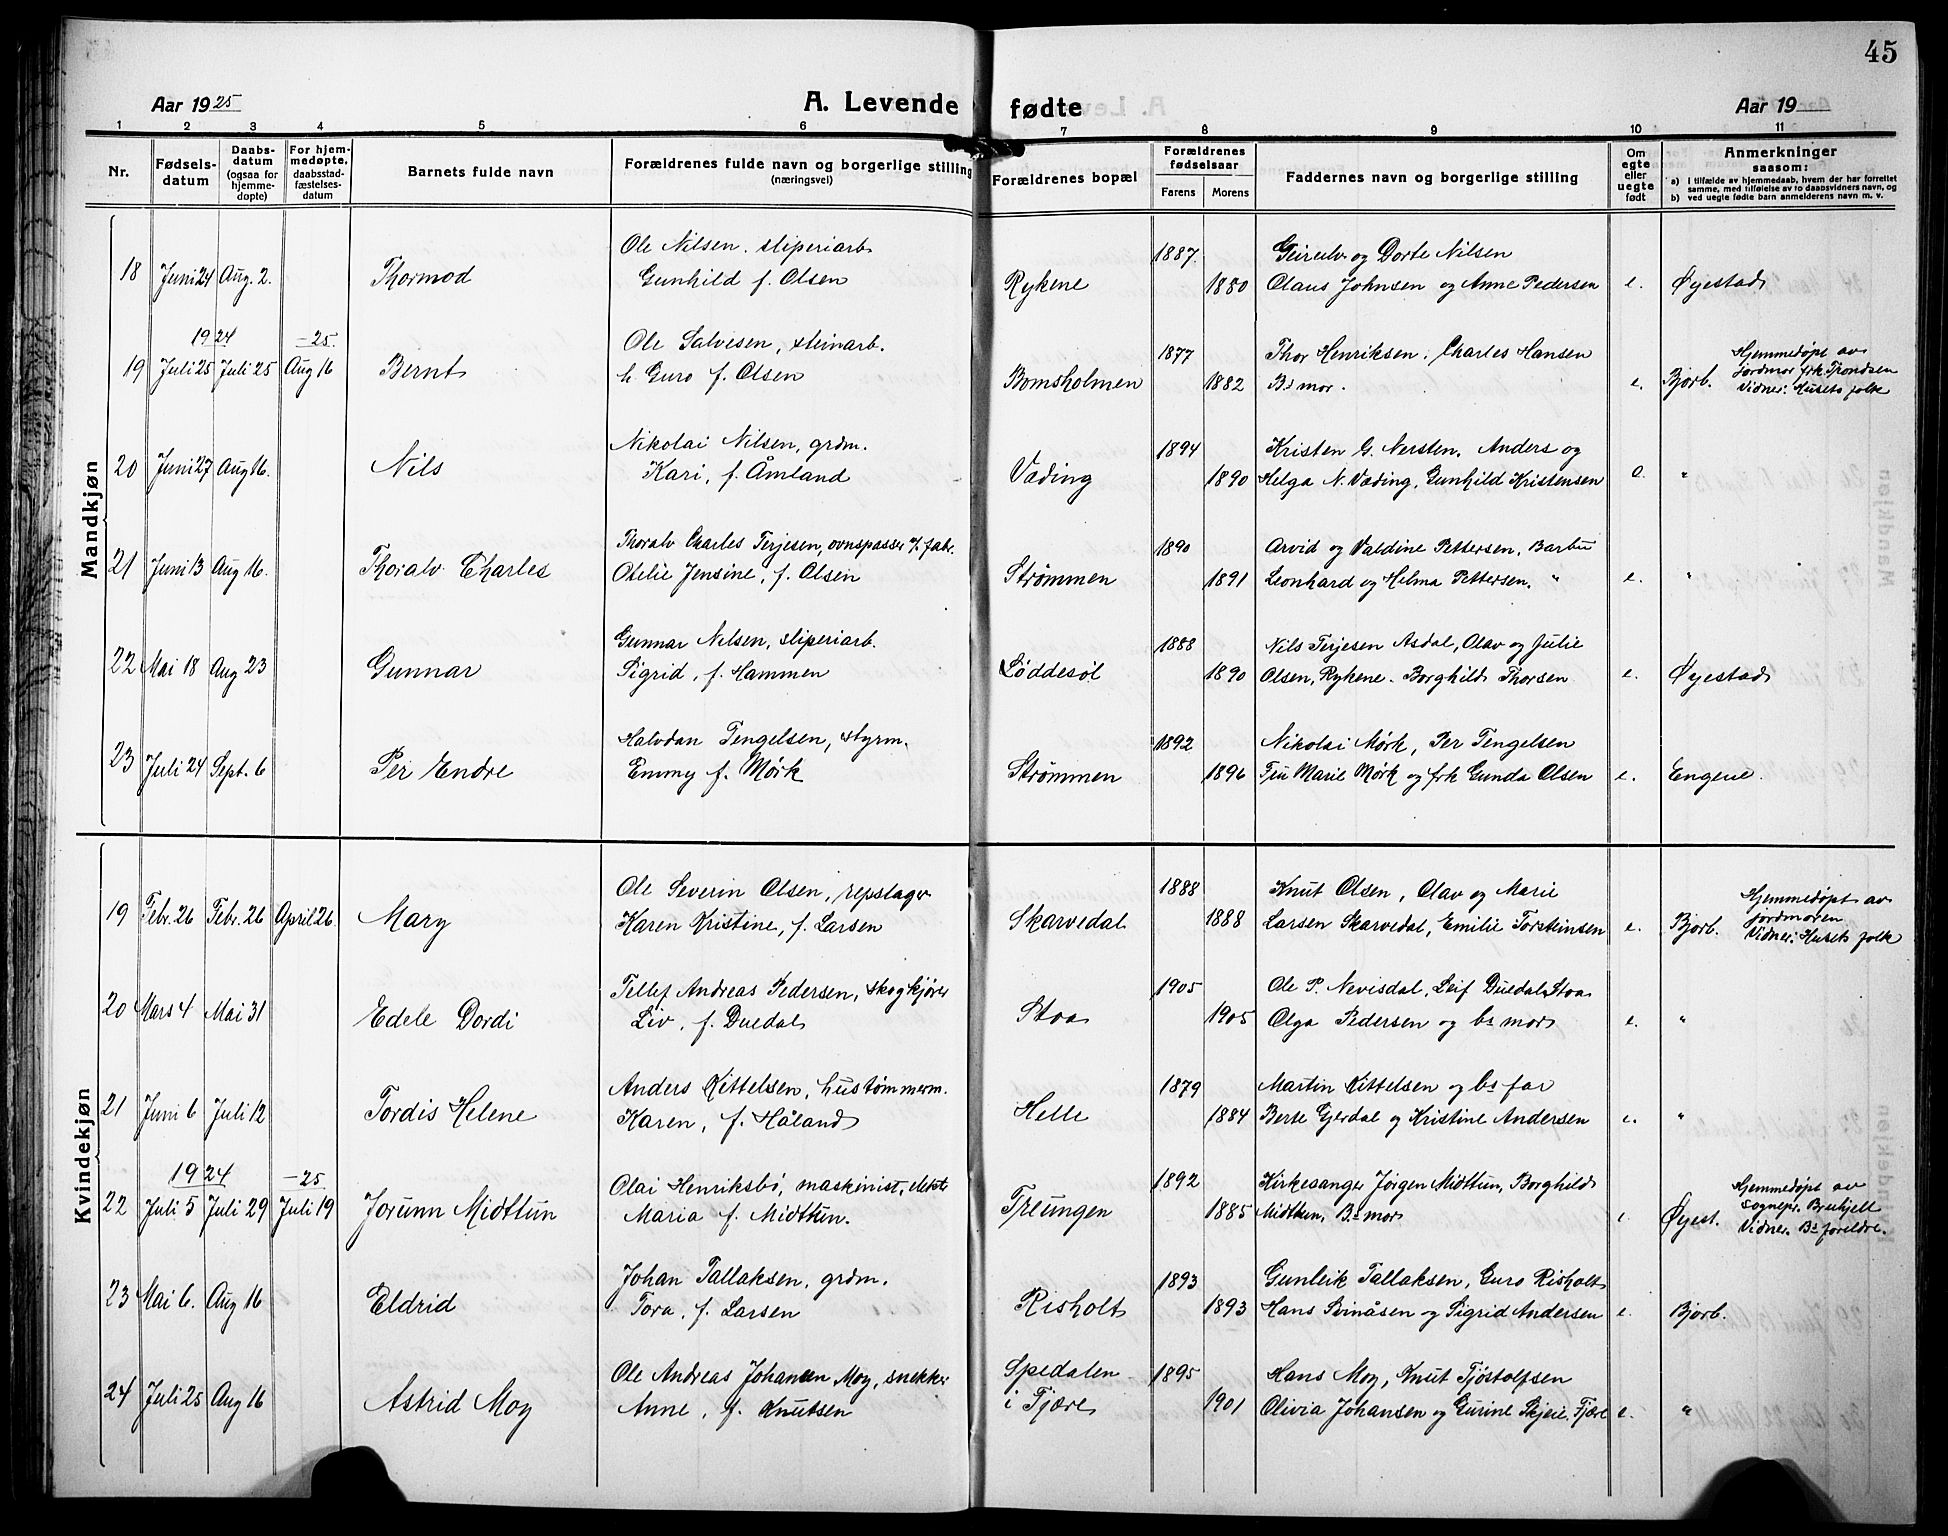 45
Aar 1925
A. Levende fødte
Aar 19
1 2 3 4 5 6 7 8 9 10 11
Nr.
Fødsels-
datum
Daabs-
datum
(ogsaa for
hjemme-
døpte)
For hjem-
medøpte,
daabsstad-
fæstelses-
datum
Barnets fulde navn
Forældrenes fulde navn og borgerlige stilling
(næringsvei)
Forældrenes bopæl
Forældrenes
fødselsaar
Farens Morens
Faddernes navn og borgerlige stilling
Om
egte
eller
uegte
født
Anmerkninger
saasom:
a) I tilfælde av hjemmedaab, hvem der har forrettet
samme, med tilføielse av to daabsvidners navn, og
b) ved uegte fødte barn anmelderens navn m. v.
Mandkjøn
Ole Nilsen. sliperiarb 1887. og Dorte Nilsen
18 Juni 24 Aug. 2. Thormod Gunhild f. Olsen Rykene 1880 Olaus Johnsen og Anne Pedersen e. Øyestad
1924 -25 Ole Salvesen, steinarb. 1877 Thor Henriksen. Charles Hansen Hjemmedøpt av
19 Juli 25 Juli 25 Aug 16 Bernt h. Guro f. Olsen Bomsholmen 1882 Bs mor. e. Bjorb. Jordmor frk. Trondsen
Vidner: Husets folk
Nikolai Nilsen, grdm. 1894 Kristen G. Nersten. Anders og
20 Juni 27 Aug 16. Nils Kari, f. Åmland Væding 1890 Helga N. Væding, Gunhild Kristensen e. "
Thoralv Charles Terjesen, ovnspasser v/ fabr. 1890 Arvid og Valdine Pettersen, Barbu
21 Juni 13 Aug 16. Thoralv Charles Otelie Jensine, f. Olsen Strømmen 1891 Leonhard og Helma Pettersen. " e. "
Gunnar Nilsen, sliperiarb. 1888 Nils Terjesen Asdal, Olav og Julie
22 Mai 18 Aug 23 Gunnar Sigrid, f. Hammen Løddesøl 1890 Olsen, Rykene. Borghild Thorsen e. Øyestad
Halvdan Tengelsen, styrm. 1892 Nikolai Mørk, Per Tengelsen
23 Juli 24 Sept. 6 Per Endre Emmy f. Mørk Strømmen 1896 Fru Marie Mørk og frk Gunda Olsen e. Engene.
Kvindekjøn
Ole Severin Olsen, repslager 1888 Knut Olsen, Olav og Marie Hjemmedøpt av
19 Febr. 26 Febr. 26 April 26 Mary Karen Kristine, f. Larsen Skarvedal 1888 Larsen Skarvedal, Emilie Torsteinsen e. Bjorb. Jordmoren
Vidner: Husets folk
Tellef Andreas Pedersen, skogkjører 1905 Ole P. Nevisdal, Leif Duedal, Stoa
20 Mars 4 Mai 31 Edele Dordi Liv, f. Duedal Stoa 1905 Olga Pedersen og bs mor e. "
Anders Kittelsen, hustømmerm. 1879 Martin Kittelsen og bs far
21 Juni 6 Juli 12 Tordis Helene Karen, f. Håland Helle 1884 Berte Gjerdal og Kristine Andersen e. "
1924 -25 Olai Henriksbø, maskinist, 1892 Kirkesanger Jørgen Midttun, Borghild Hjemmedøpt av
22 Juli 5 Juli 29 Juli 19 Jorunn Midttun Maria f. Midttun. Treungen 1885 Midttun, Bs mor e. Øyest. Sognepr.
Vidner. Bs foreldre.
Johan Tallaksen, grdm. 1893 Gunleik Tallaksen, Guro Risholt
23 Mai 6. Aug 16 Eldrid Tora, f. Larsen Risholt 1893 Hans Svinåsen og Sigrid Andersen e. Bjorb.
Ole Andreas Johansen Moy, snekker Spedalen 1895 Hans Moy, Knut Tjøstolfsen
24 Juli 25 Aug 16 Astrid Moy Anne, f. Knutsen i Fjære 1901 Olivia Johansen og Gurine Skjeie, Fjære e. "